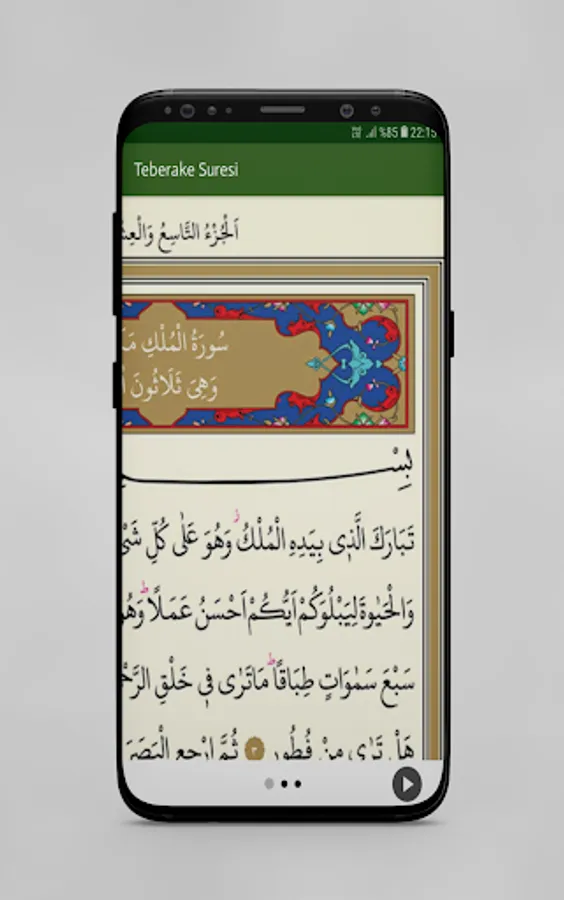 %85 22:15
Teberake Suresi
اَلْجُزْءُ التَّاسِعُ
سُورَةُ الْمُلْكِ
وَهِيَ ثَلَاثُونَ
بِسْ
تَبَارَكَ الَّذ۪ى بِيَدِهِ الْمُلْكُ ز وَهُوَ عَلٰى كُلِّ
وَالْحَيٰوةَ لِيَبْلُوَكُمْ اَيُّكُمْ اَحْسَنُ عَمَلًا ط
سَبْعَ سَمٰوَاتٍ طِبَاقًا ط مَاتَرٰى ف۪ى خَلْقِ
هَلْ تَرٰى مِنْ فُطُورٍ ٣ ثُمَّ ارْجِعِ الْبَصَرَ